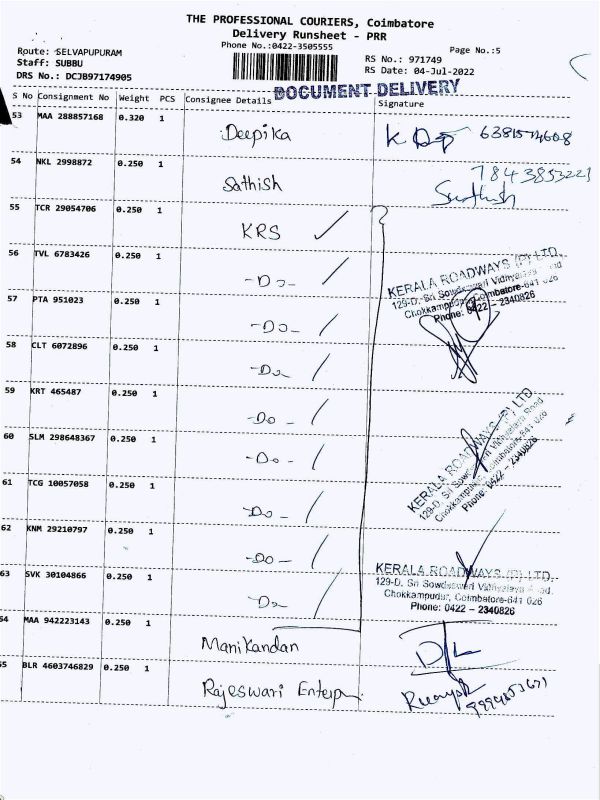 THE PROFESSIONAL COURIERS, Coimbatore
Delivery Runsheet - PRR
Phone No.:0422-3505555
Page No.:5
Route: SELVAPUPURAM
Staff: SUBBU
DRS No.: DCJB97174905
RS No.: 971749
RS Date: 04-Jul-2022
DOCUMENT DELIVERY
S No Consignment No Weight PCS Consignee Details Signature
53 MAA 288857168 0.320 1 Deepika
54 NKL 2998872 0.250 1 Sathish 7843853221
55 TCR 29054706 0.250 1 KRS
56 TVL 6783426 0.250 1 -Do-
57 PTA 951023 0.250 1 -Do-
58 CLT 6072896 0.250 1 -Do-
59 KRT 465487 0.250 1 -Do-
60 SLM 298648367 0.250 1 -Do-
61 TCG 10057058 0.250 1 -Do-
62 KNM 29210797 0.250 1 -Do-
63 SVK 30104866 0.250 1 -Do-
54 MAA 942223143 0.250 1 Manikandan
55 BLR 4603746829 0.250 1 Rajeswari
KERALA ROADWAYS (P) LTD.
129-D, Sri Sowdeswari Vidhyalaya
Chokkampudur, Coimbatore-641 026
Phone: 0422 - 2340826
KERALA ROADWAYS (P) LTD.
129-D, Sri Sowdeswari Vidhyalaya Road
Chokkampudur, Coimbatore-641 026
Phone: 0422 - 2340826
KERALA ROADWAYS (P) LTD.
129-D, Sri Sowdeswari Vidhyalaya Road,
Chokkampudur, Coimbatore-641 026
Phone: 0422 - 2340826